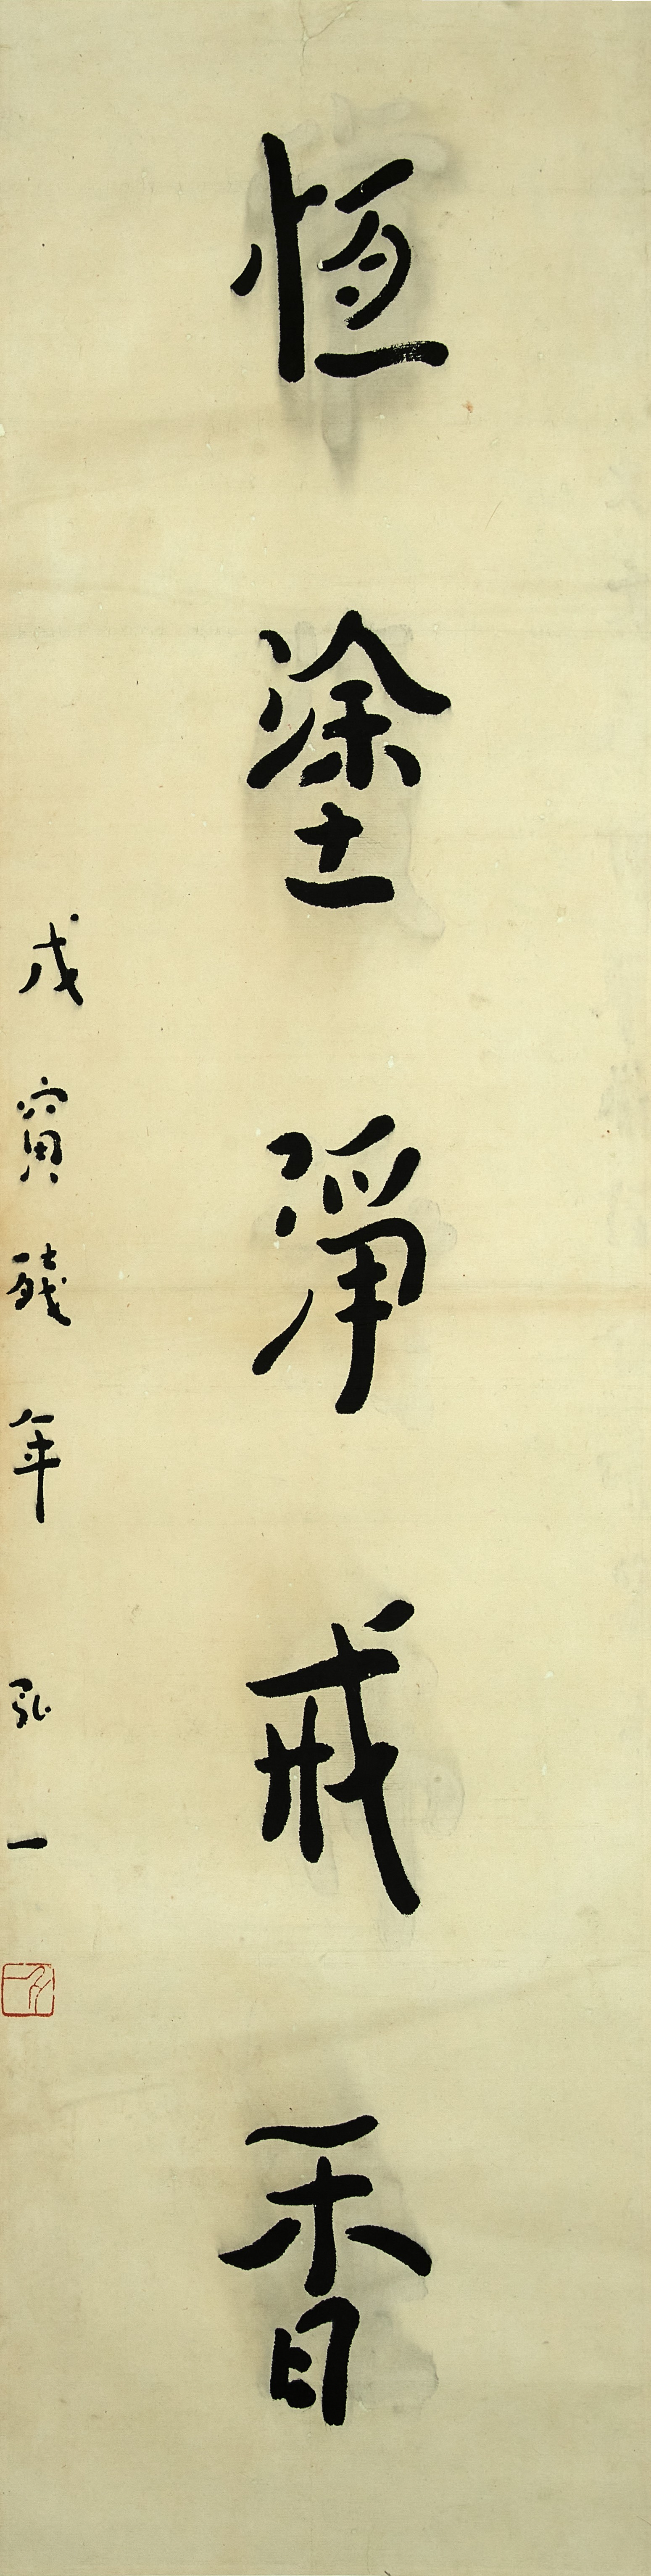 恆塗淨戒香
戊寅殘年 弘一